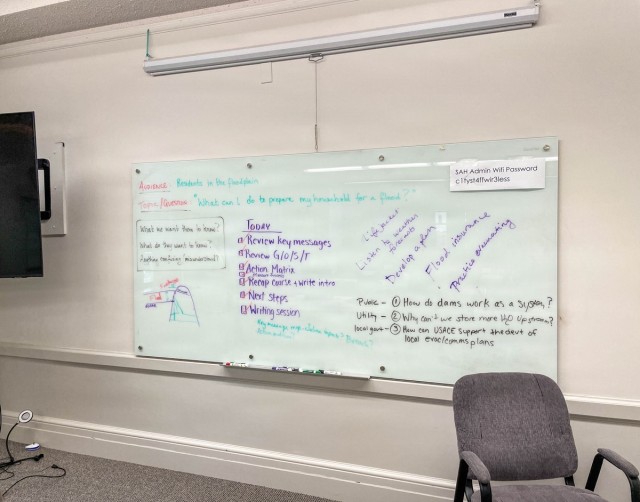 SAH Admin Wifi Password
Audience: Residents in the floodplain
Topic/Question: "What can I do to prepare my household for a flood?"
What we want them to know?
What do they want to know?
Anything confusing/misunderstood?
TODAY
Review key messages
Review G/O/S/T
Action Matrix
Recap course + write intro
Next steps
Writing session
Listen to weather forecasts
Develop a plan
Flood insurance
Practice evacuating
Public - ① How do dams work as a system?
Utility - ② Why can't we store more H₂O upstream?
local govt - ③ How can USACE support the devt of
local evac/comms plans